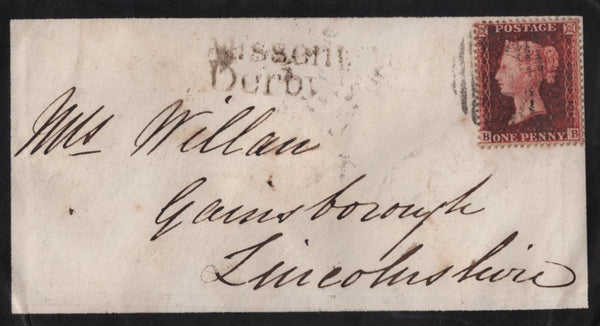 Missent
Derby
POSTAGE
B ONE PENNY B
Mrs Willan
Gainsborough
Lincolnshire